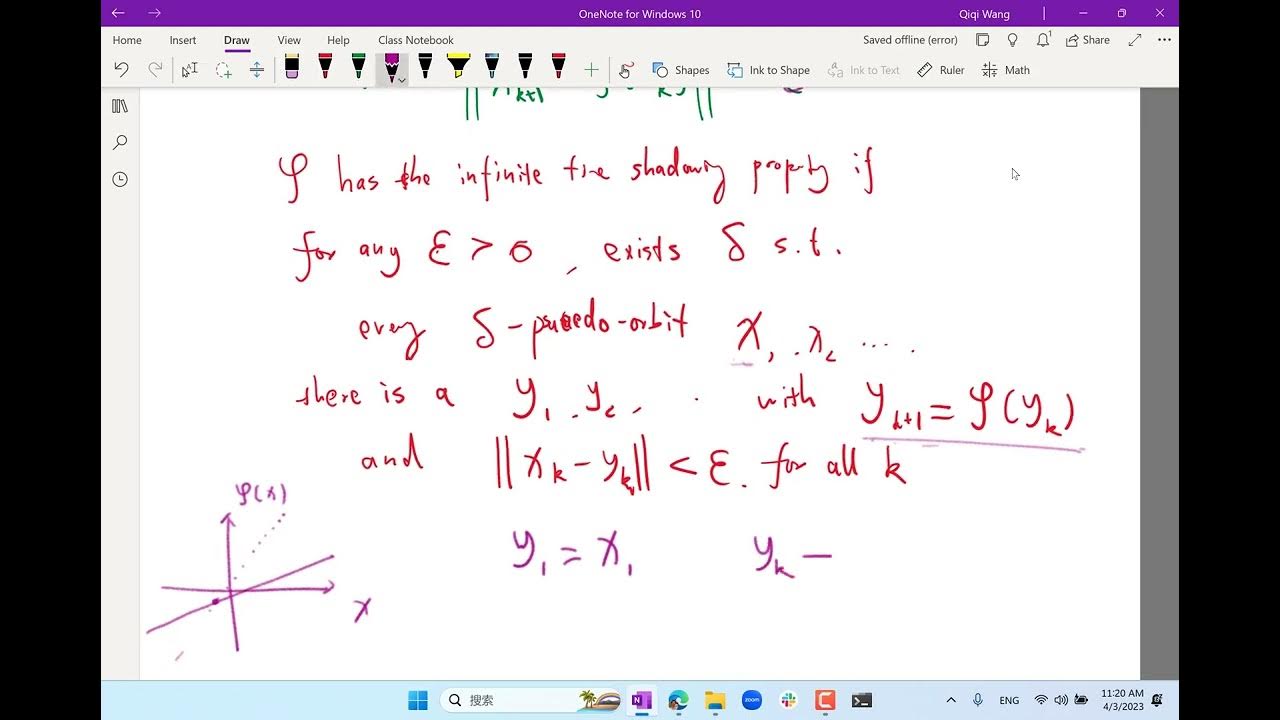 OneNote for Windows 10
Qiqi Wang
Home Insert Draw View Help Class Notebook
Saved offline (error)
Share
Shapes Ink to Shape Ink to Text Ruler Math
φ has the infinite time shadowing property if
for any ε > 0, exists δ s.t.
every δ-psuedo-orbit x₁, x₂ ....
there is a y₁, y₂, . with yₖ₊₁ = φ(yₖ)
and ||xₖ - yₖ|| < ε. for all k
φ(x)
y₁ = x₁ yₖ —
x
搜索
zoom
ENG
11:20 AM
4/3/2023